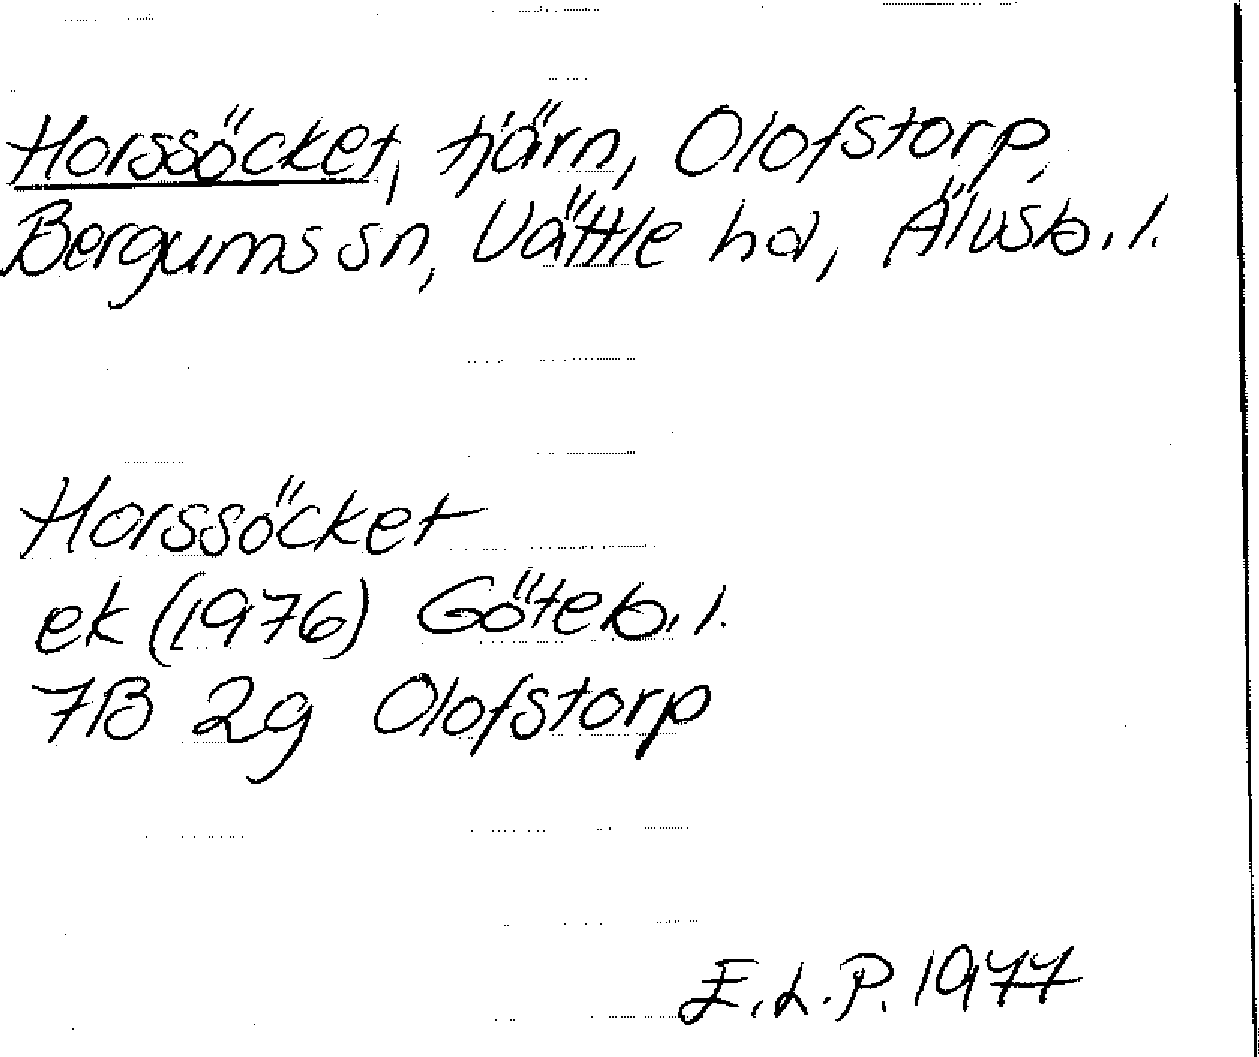 Horssöcket, tjärn, Olofstorp,
Bergums sn, Vättle hd, Älvsb. l.
Horssöcket
ek (1976) Göteb. l.
7B 2g Olofstorp
E. L. P. 1977